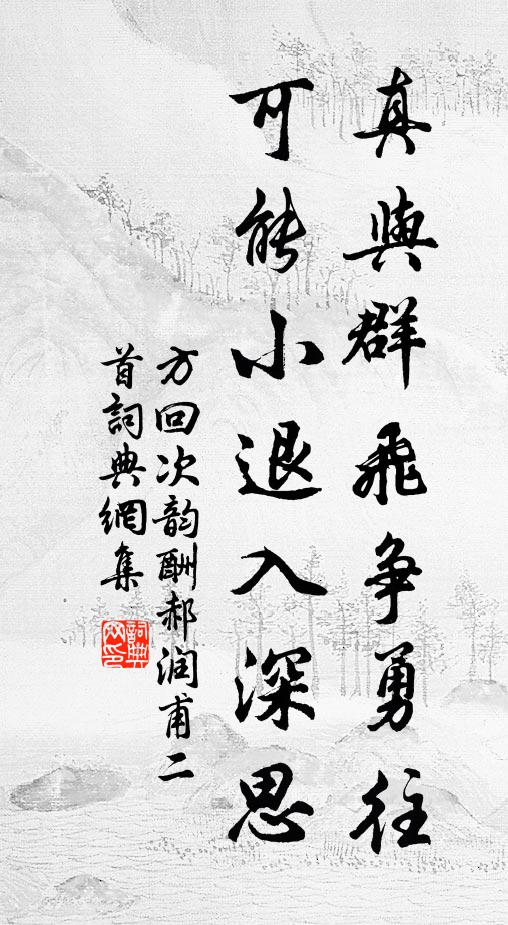 真與群飛争勇往
可能小退入深思
方回次韵酬郝润甫二
首詞典網集
詞典
网印